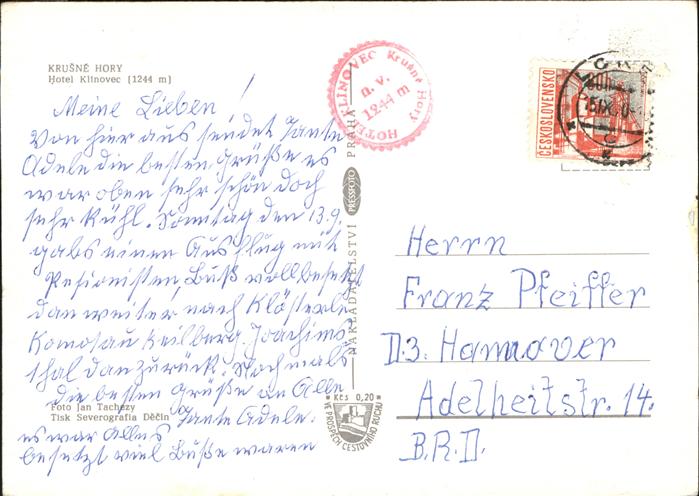 KRUŠNÉ HORY
Hotel Klínovec (1244 m)
HOTEL KLÍNOVEC Krušné Hory
n. v.
1244 m
ČESKOSLOVENSKO
Meine Lieben!
Von hier aus sendet Tante
Adele die besten Grüße es
war oben sehr schön doch
sehr kühl. Sonntag den 13.9.
gabs einen Ausflug mit
Pesionisten, Buß vollbesetzt
dan weiter nach Klösterle
Komotau Keilberg, Joachims
thal dan zurück. Nochmals
die besten Grüße an Alle
Tante Adele.
es war Alles
besetzt viel Buße waren
Foto Jan Tachezy
Tisk Severografia Děčín
NAKLADATELSTVÍ PRESSFOTO PRAHA
Kčs 0,20
VE PROSPĚCH CESTOVNÍHO RUCHU
Herrn
Franz Pfeiffer
D.3. Hannover
Adelheitstr. 14.
B.R.D.